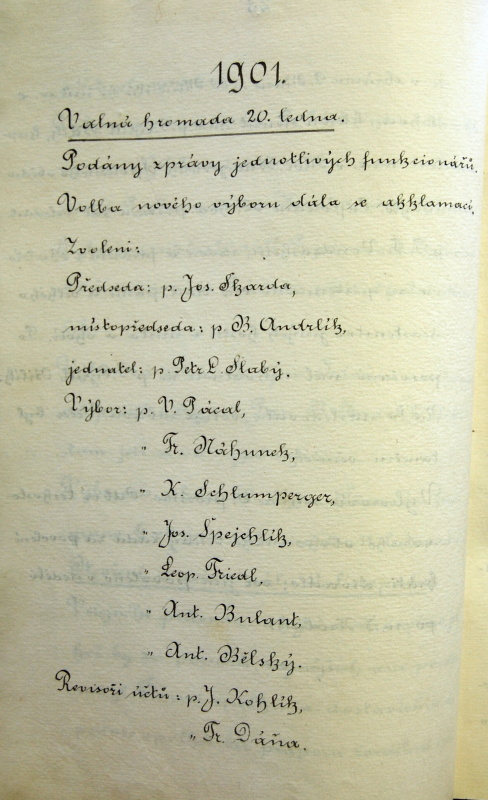 1901.
Valná hromada 20. ledna.
Podány zprávy jednotlivých funkcionářů.
Volba nového výboru dála se akklamací.
Zvoleni:
Předseda: p. Jos. Skarda,
místopředseda: p. B. Andrlík,
jednatel: p. Petr L. Slabý.
Výbor: p. V. Pácal,
" Fr. Náhunek,
" K. Schlumperger,
" Jos. Špejchlík,
" Leop. Friedl,
" Ant. Bulant,
" Ant. Bělský.
Revisoři účtů: p. J. Kohlík,
" Fr. Dáňa.